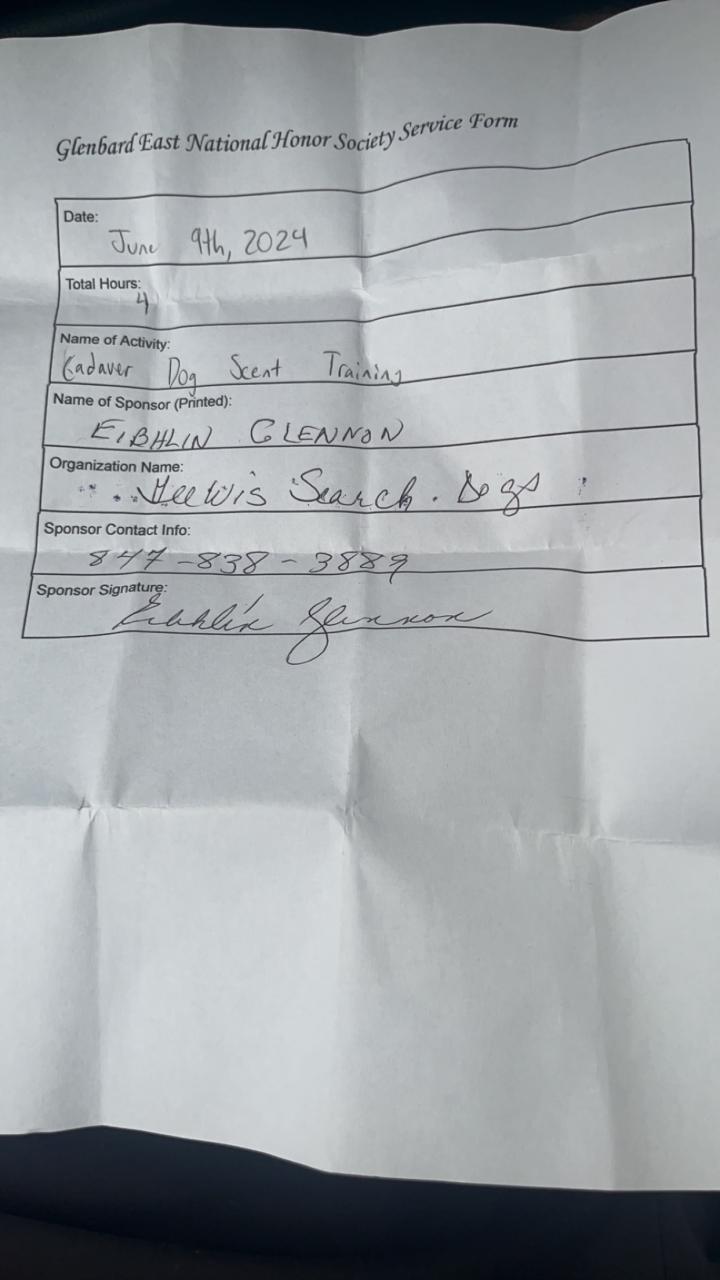 Glenbard East National Honor Society Service Form
Date:
June 9th, 2024
Total Hours:
4
Name of Activity:
Cadaver Dog Scent Training
Name of Sponsor (Printed):
EIBHLIN GLENNON
Organization Name:
Search. Dogs
Sponsor Contact Info:
847-838-3889
Sponsor Signature:
Eibhlín Glennon